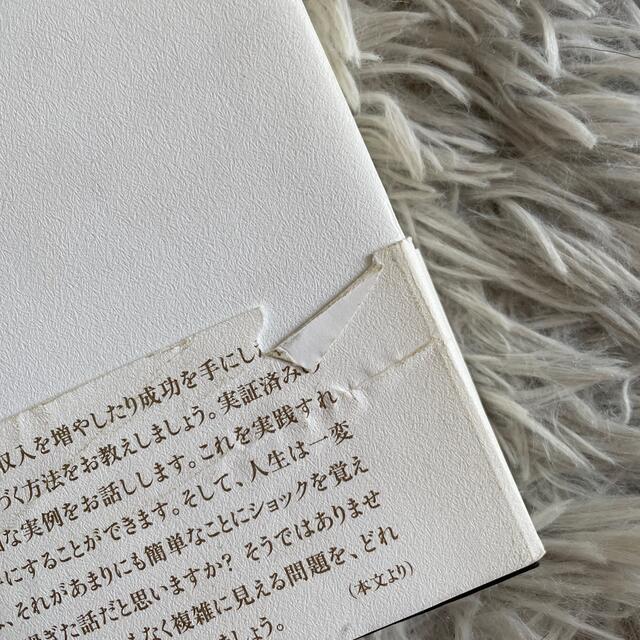 収入を増やしたり成功を手にし
づく方法をお教えしましょう。実証済み
な実例をお話しします。これを実践すれ
にすることができます。そして、人生は一変
、それがあまりにも簡単なことにショックを覚え
ぎた話だと思いますか? そうではありませ
もなく複雑に見える問題を、どれ
ましょう。
(本文より)